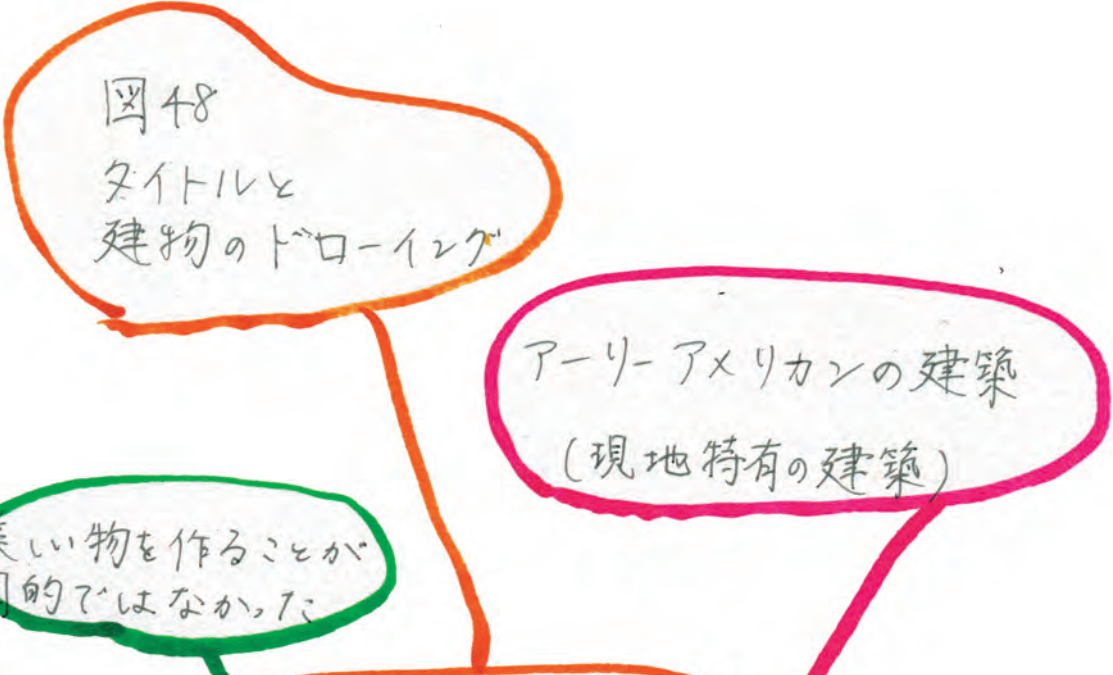 図48
タイトルと
建物のドローイング
アーリーアメリカンの建築
(現地特有の建築)
美しい物を作ることが
目的ではなかった